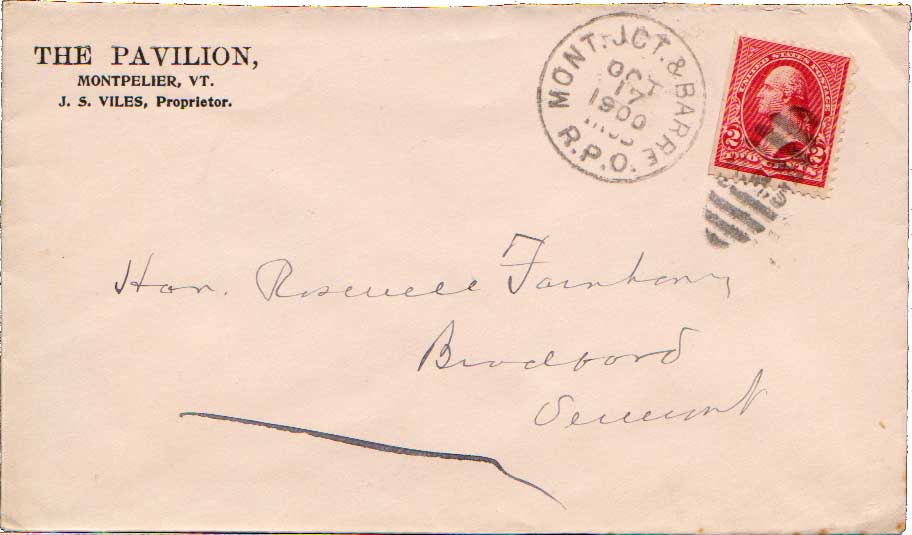 THE PAVILION,
MONTPELIER, VT.
J. S. VILES, Proprietor.
MONT. JCT. & BARRE
OCT
17
1900
R.P.O.
UNITED STATES POSTAGE
2 2
Hon. Roswell Farnham,
Bradford
Vermont